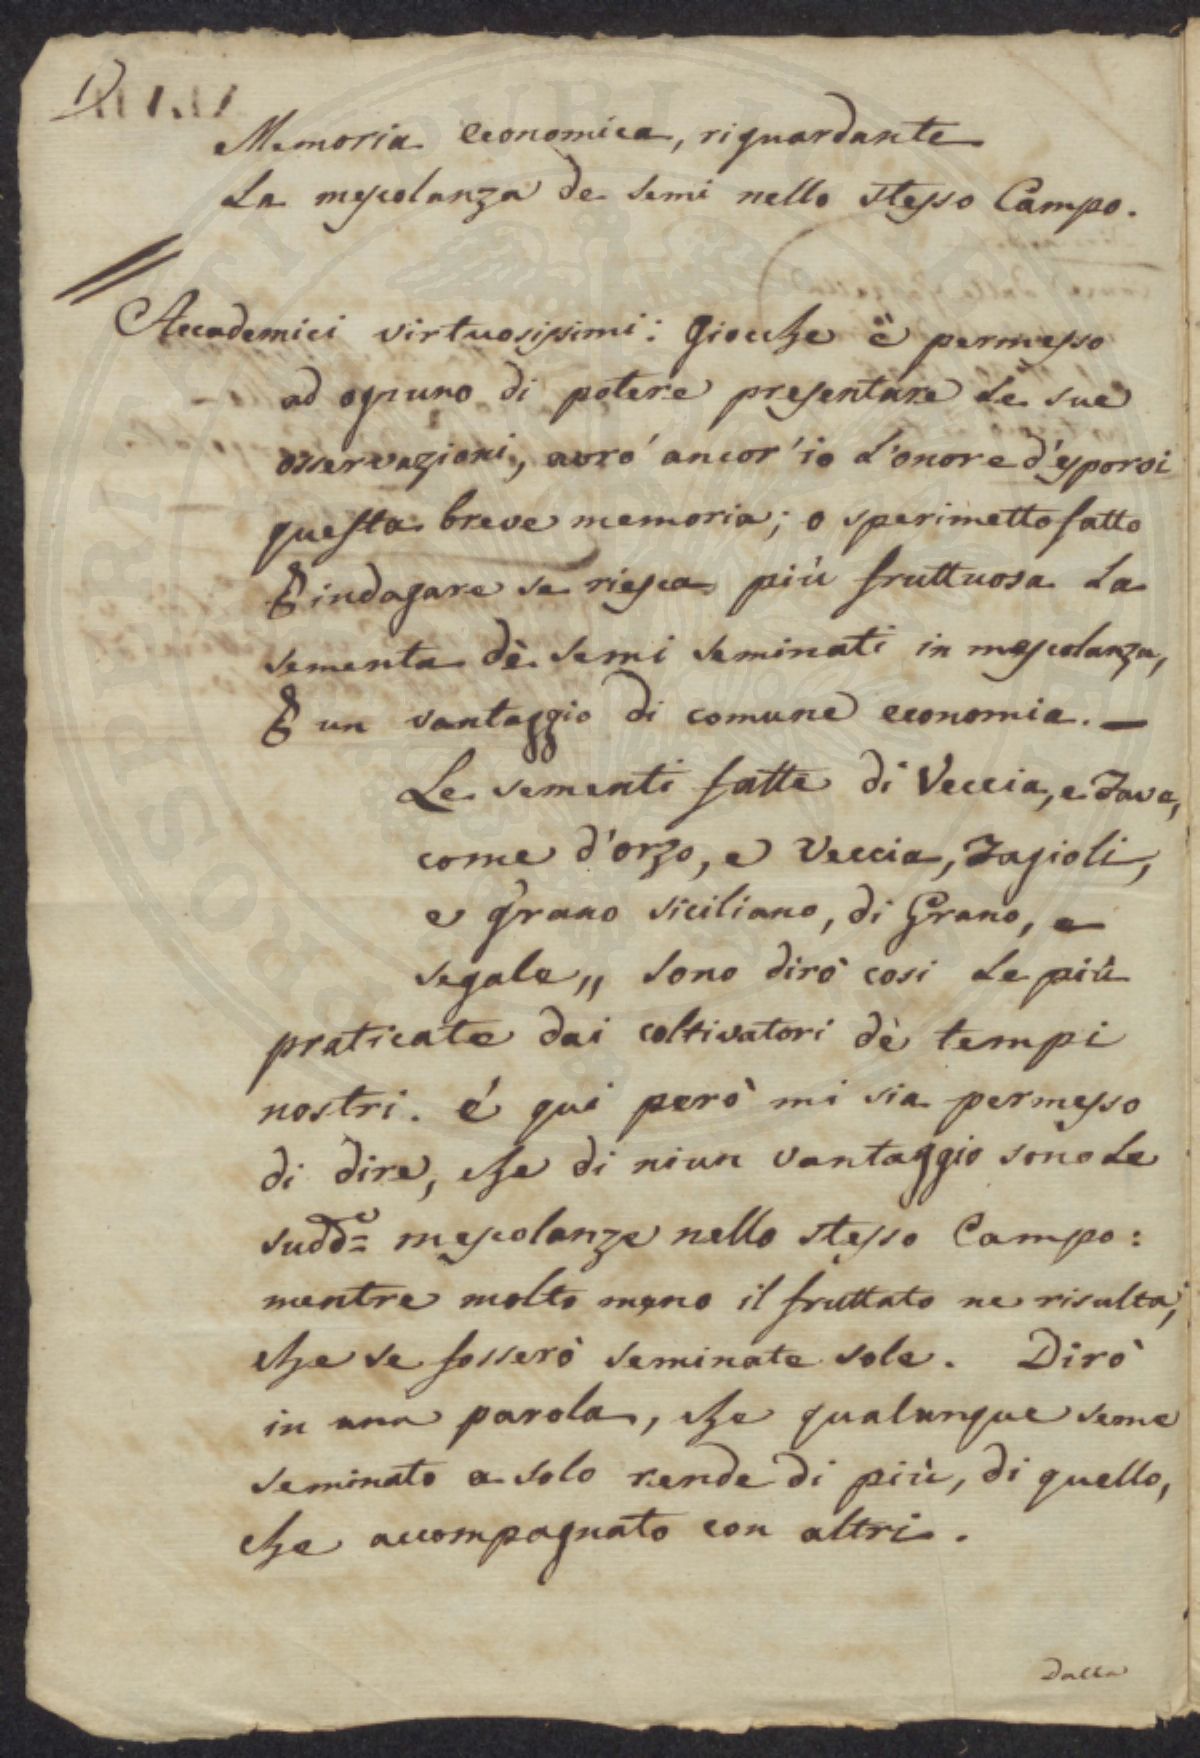 1)
Memoria economica, riguardante
La mescolanza de semi nello stesso Campo.
Accademici virtuosissimi: Giacche è permesso
ad ogniuno di potere presentare le sue
osservazioni, avró ancor'io l'onore d'esporvi
questa breve memoria; o sperimetto fatto
P indagare se riesca più fruttuosa la
sementa dè semi seminati in mescolanza,
P un vantaggio di comune economia. —
Le sementi fatte di Veccia, e Fava,
come d'orzo, e Veccia, Fagioli,
e Grano siciliano, di Grano, e
segale„ sono dirò cosi le più
praticate dai coltivatori dè tempi
nostri. é qui però mi sia permesso
di dire, che di niun vantaggio sono le
sudd.e mescolanze nello stesso Campo:
mentre molto meno il fruttato ne risulta,
che se fosserò seminate sole. Dirò
in una parola, che qualunque seme
seminato a solo rende di più, di quello,
che accompagnato con altri.
Dalla
PROSPERITATI PUBLICAE